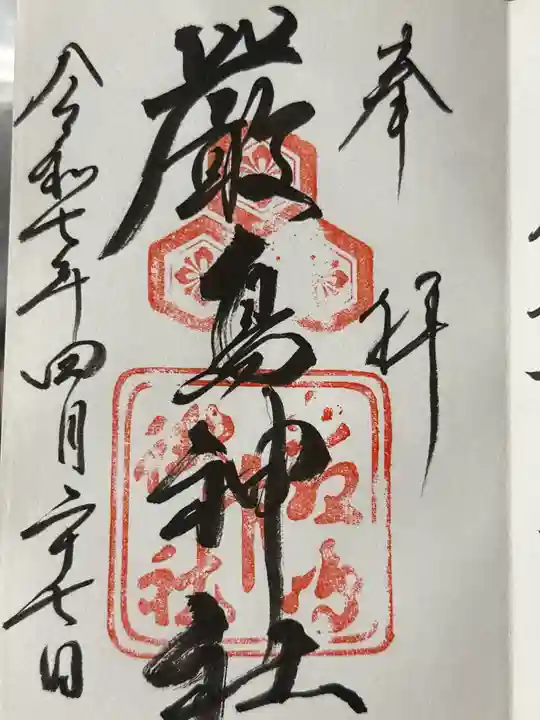 奉拝
厳島神社
令和七年四月二十七日